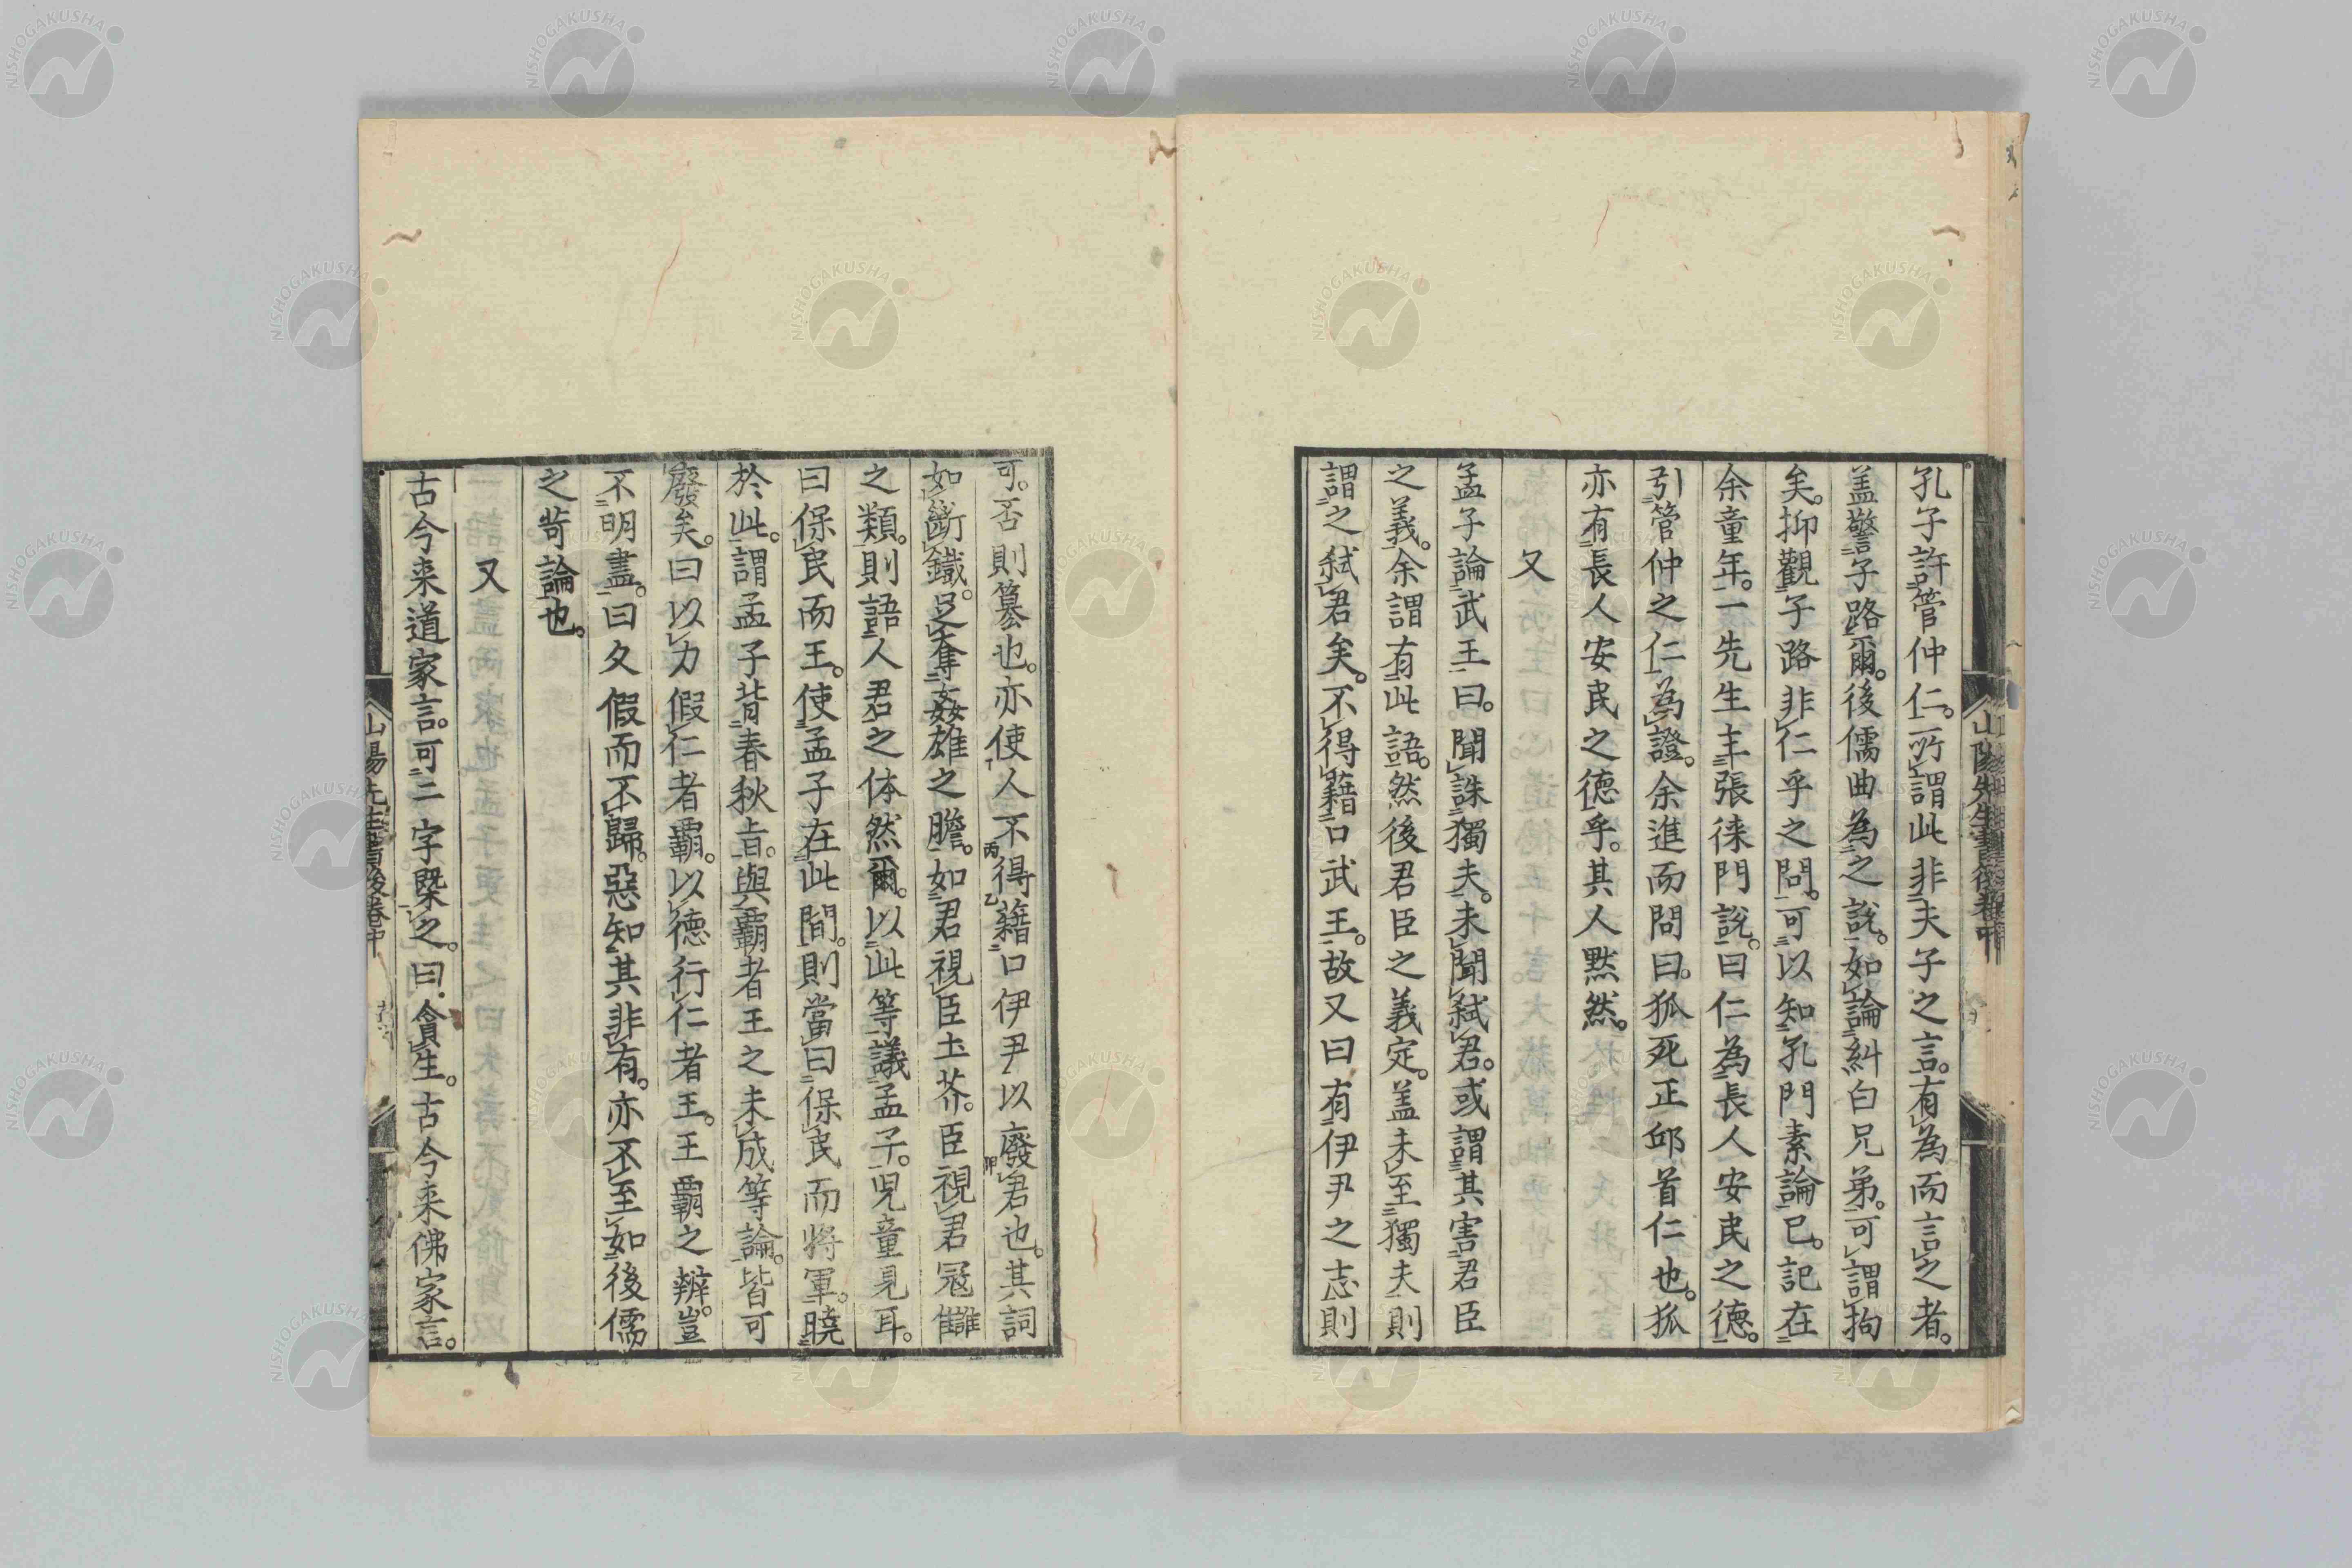 孔子許管仲仁。所謂此非夫子之言。有為而言之者。
盖警子路爾。後儒曲為之說。如論糾白兄弟。可謂拘
矣。抑觀子路非仁乎之問。可以知孔門素論已。記在
余童年。一先生主張徠門說。曰仁為長人安民之德。
引管仲之仁為證。余進而問曰。狐死正邱首仁也。狐
亦有長人安民之德乎。其人黙然。
又
孟子論武王曰。聞誅獨夫。未聞弑君。或謂其害君臣
之義。余謂有此語。然後君臣之義定。盖未至獨夫則
謂之弑君矣。不得藉口武王。故又曰有伊尹之志則
可。否則簒也。亦使人不得藉口伊尹以廢君也。其詞
如斷鐵。足奪姦雄之膽。如君視臣土芥。臣視君冦讎
之類。則語人君之体然爾。以此等議孟子。児童見耳。
曰保民而王。使孟子在此間。則當曰保民而将軍。曉
於此。謂孟子背春秋旨。與覇者王之未成等論。皆可
廢矣。曰以力假仁者覇。以德行仁者王。王覇之辨。豈
不明盡。曰久假而不歸。惡知其非有。亦不至如後儒
之苛論也。
又
古今来道家言。可二字槩之。曰貪生。古今来佛家言。
山陽先生書後卷中
NISHOGAKUSHA